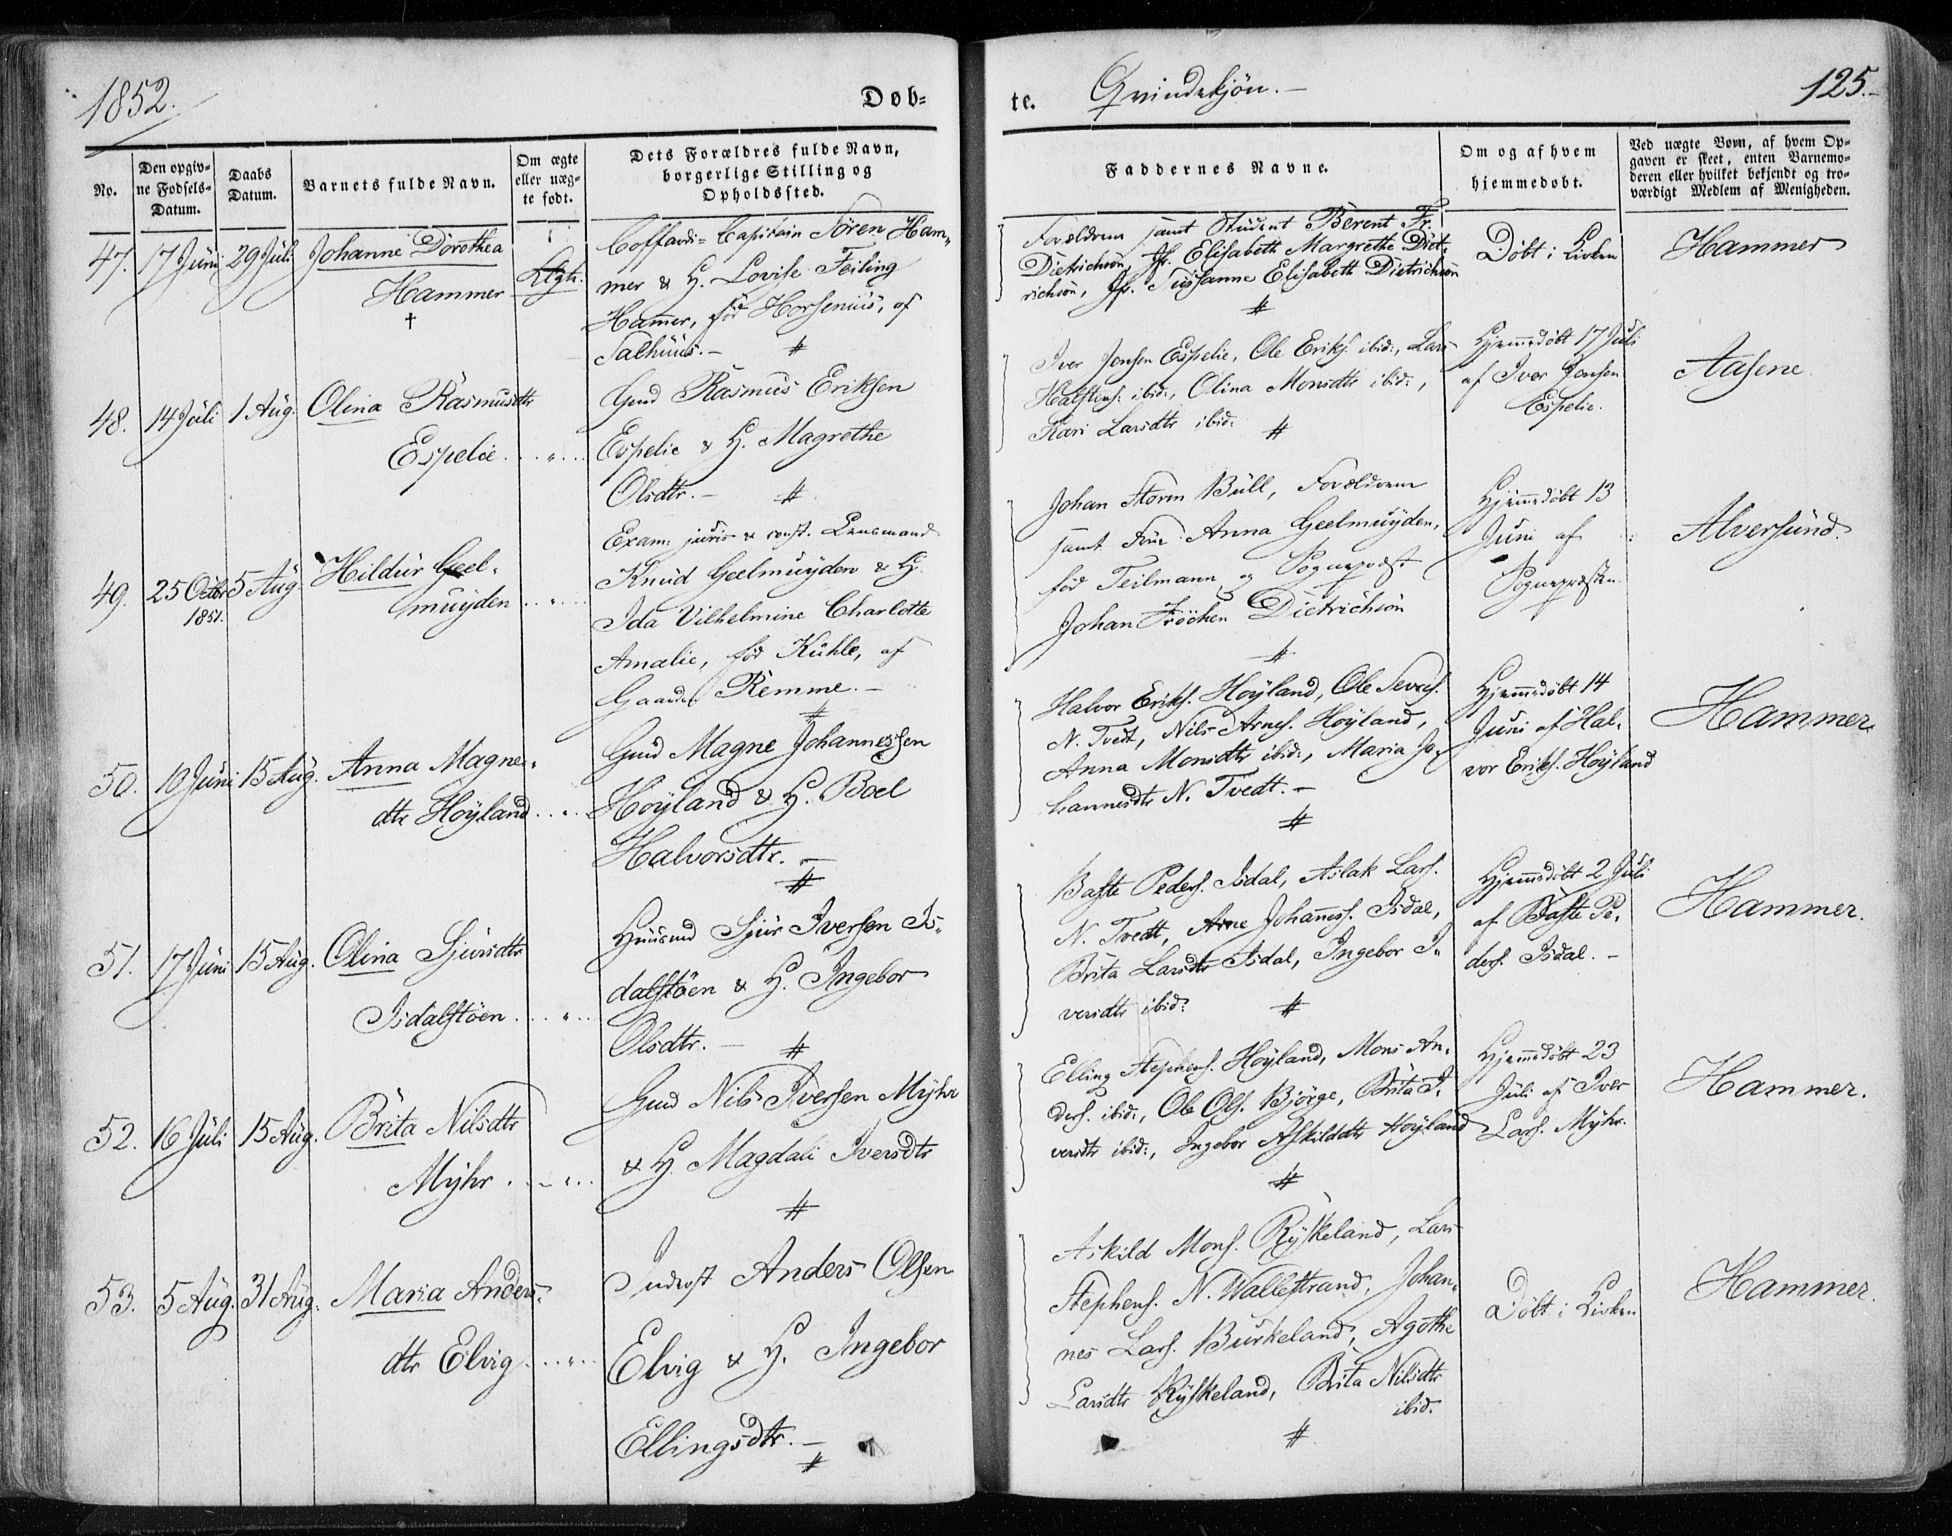 1852.
Døb=
No.
Den opgiv-
ne Fødsels-
Datum.
Daabs
Datum.
Barnets fulde Navn.
Om ægte
eller uæg-
te født.
Dets Forældres fulde Navn,
borgerlige Stilling og
Opholdssted.
47. 17 Juni 29 Juli Johanne Dorothea
Hammer
†
Ægte.
Coffardi=Capitain Sören Ham-
mer & H. Lovise Feiling
Hamer, fød Horsenius, af
Salhuus.— #
48. 14 Juli 1 Aug. Olina Rasmusdtr
Espelie . . „ . .
Gmd Rasmus Eriksen
Espelie & H. Magrethe
Olsdtr.— #
49. 25 Octbr 5 Aug. Hildur Geel-
1851.
muijden . . „ . .
Exam. juris & const. Lensmand
Knud Geelmuijden & H.
Ida Vilhelmine Charlotte
Amalie, fød Kühle, af
Gaarden Remme.—
#
50. 10 Juni 15 Aug. Anna Magne-
dtr Høyland . . „ . .
Gmd Magne Johannessen
Høyland & H. Boel
Halvorsdtr.—
#
51. 17 Juni 15 Aug. Olina Sjursdtr
Isdalstøen . . „ . .
Huusmd Sjur Iversen Is-
dalstøen & H. Ingebor
Olsdtr.— #
52. 16 Juli 15 Aug. Brita Nilsdtr
Myhr . . „ . .
Gmd Nils Iversen Myhr
& H. Magdali Iversdtr
#
53. 5 Aug. 31 Aug. Maria Anders-
dtr Elvig . . „ . .
Inderst Anders Olsen
Elvig & H. Ingebor
Ellingsdtr.—
#
te. Qvindekjøn.—
125.—
Faddernes Navne.
Om og af hvem
hjemmedøbt.
Ved uægte Børn, af hvem Op-
gaven er skeet, enten Barnemo-
deren eller hvilket bekjendt og tro-
værdigt Medlem af Menigheden.
Forældrene samt Student Berent Fr.
Dietrichson, Jfr. Elisabeth Margrethe Diet-
richson, Jfr. Susanne Elisabeth Dietrichson
#
Døbt i Kirken
Hammer
Iver Jensen Espelie, Ole Eriks. ibid:, Lars
Halstens. ibid:, Olina Monsdtr ibid:,
Kari Larsdtr ibid: #
Hjemmedøbt 17 Juli
af Iver Jensen
Espelie.
Aasene.
Johan Storm Bull, Forældrene
samt Frue Anna Geelmuijden,
fød Teilmann og Sognepræst
Johan Frøchen Dietrichson
#
Hjemmedøbt 13
Juni af
Sognepræsten.
Alversund.
Halvor Eriks. Høyland, Ole Severs.
N. Tvedt, Nils Arnes. Høyland,
Anna Monsdtr ibid:, Maria Jo-
hannesdtr N. Tvedt.—
#
Hjemmedøbt 14
Juni af Hal-
vor Eriks. Høyland
Hammer.
Baste Peders. Isdal, Aslak Lars.
N. Tvedt, Arne Johaness. Isdal,
Brita Larsdtr Isdal, Ingebor I-
versdtr ibid: #
Hjemmedøbt 2 Juli
af Baste Pe-
ders. Isdal.—
Hammer.
Elling Stephens. Høyland, Mons An-
ders. ibid:, Ole Ols. Bjørge, Brita I-
versdtr ibid:, Ingebor Askildsdtr Høyland
#
Hjemmedøbt 23
Juli af Iver
Lars. Myhr.
Hammer.
Askild Mons. Ryskeland, Lars
Stephens. N. Wallestrand, Johan-
nes Lars. Burkeland, Agothe
Larsdtr Ryskeland, Brita Nilsdtr
ibid.
#
Døbt i Kirken
Hammer.